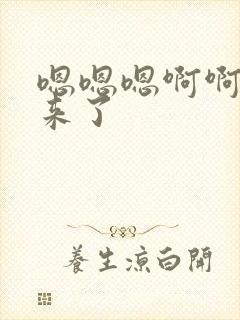 嗯嗯嗯啊啊
来了
養生涼白開